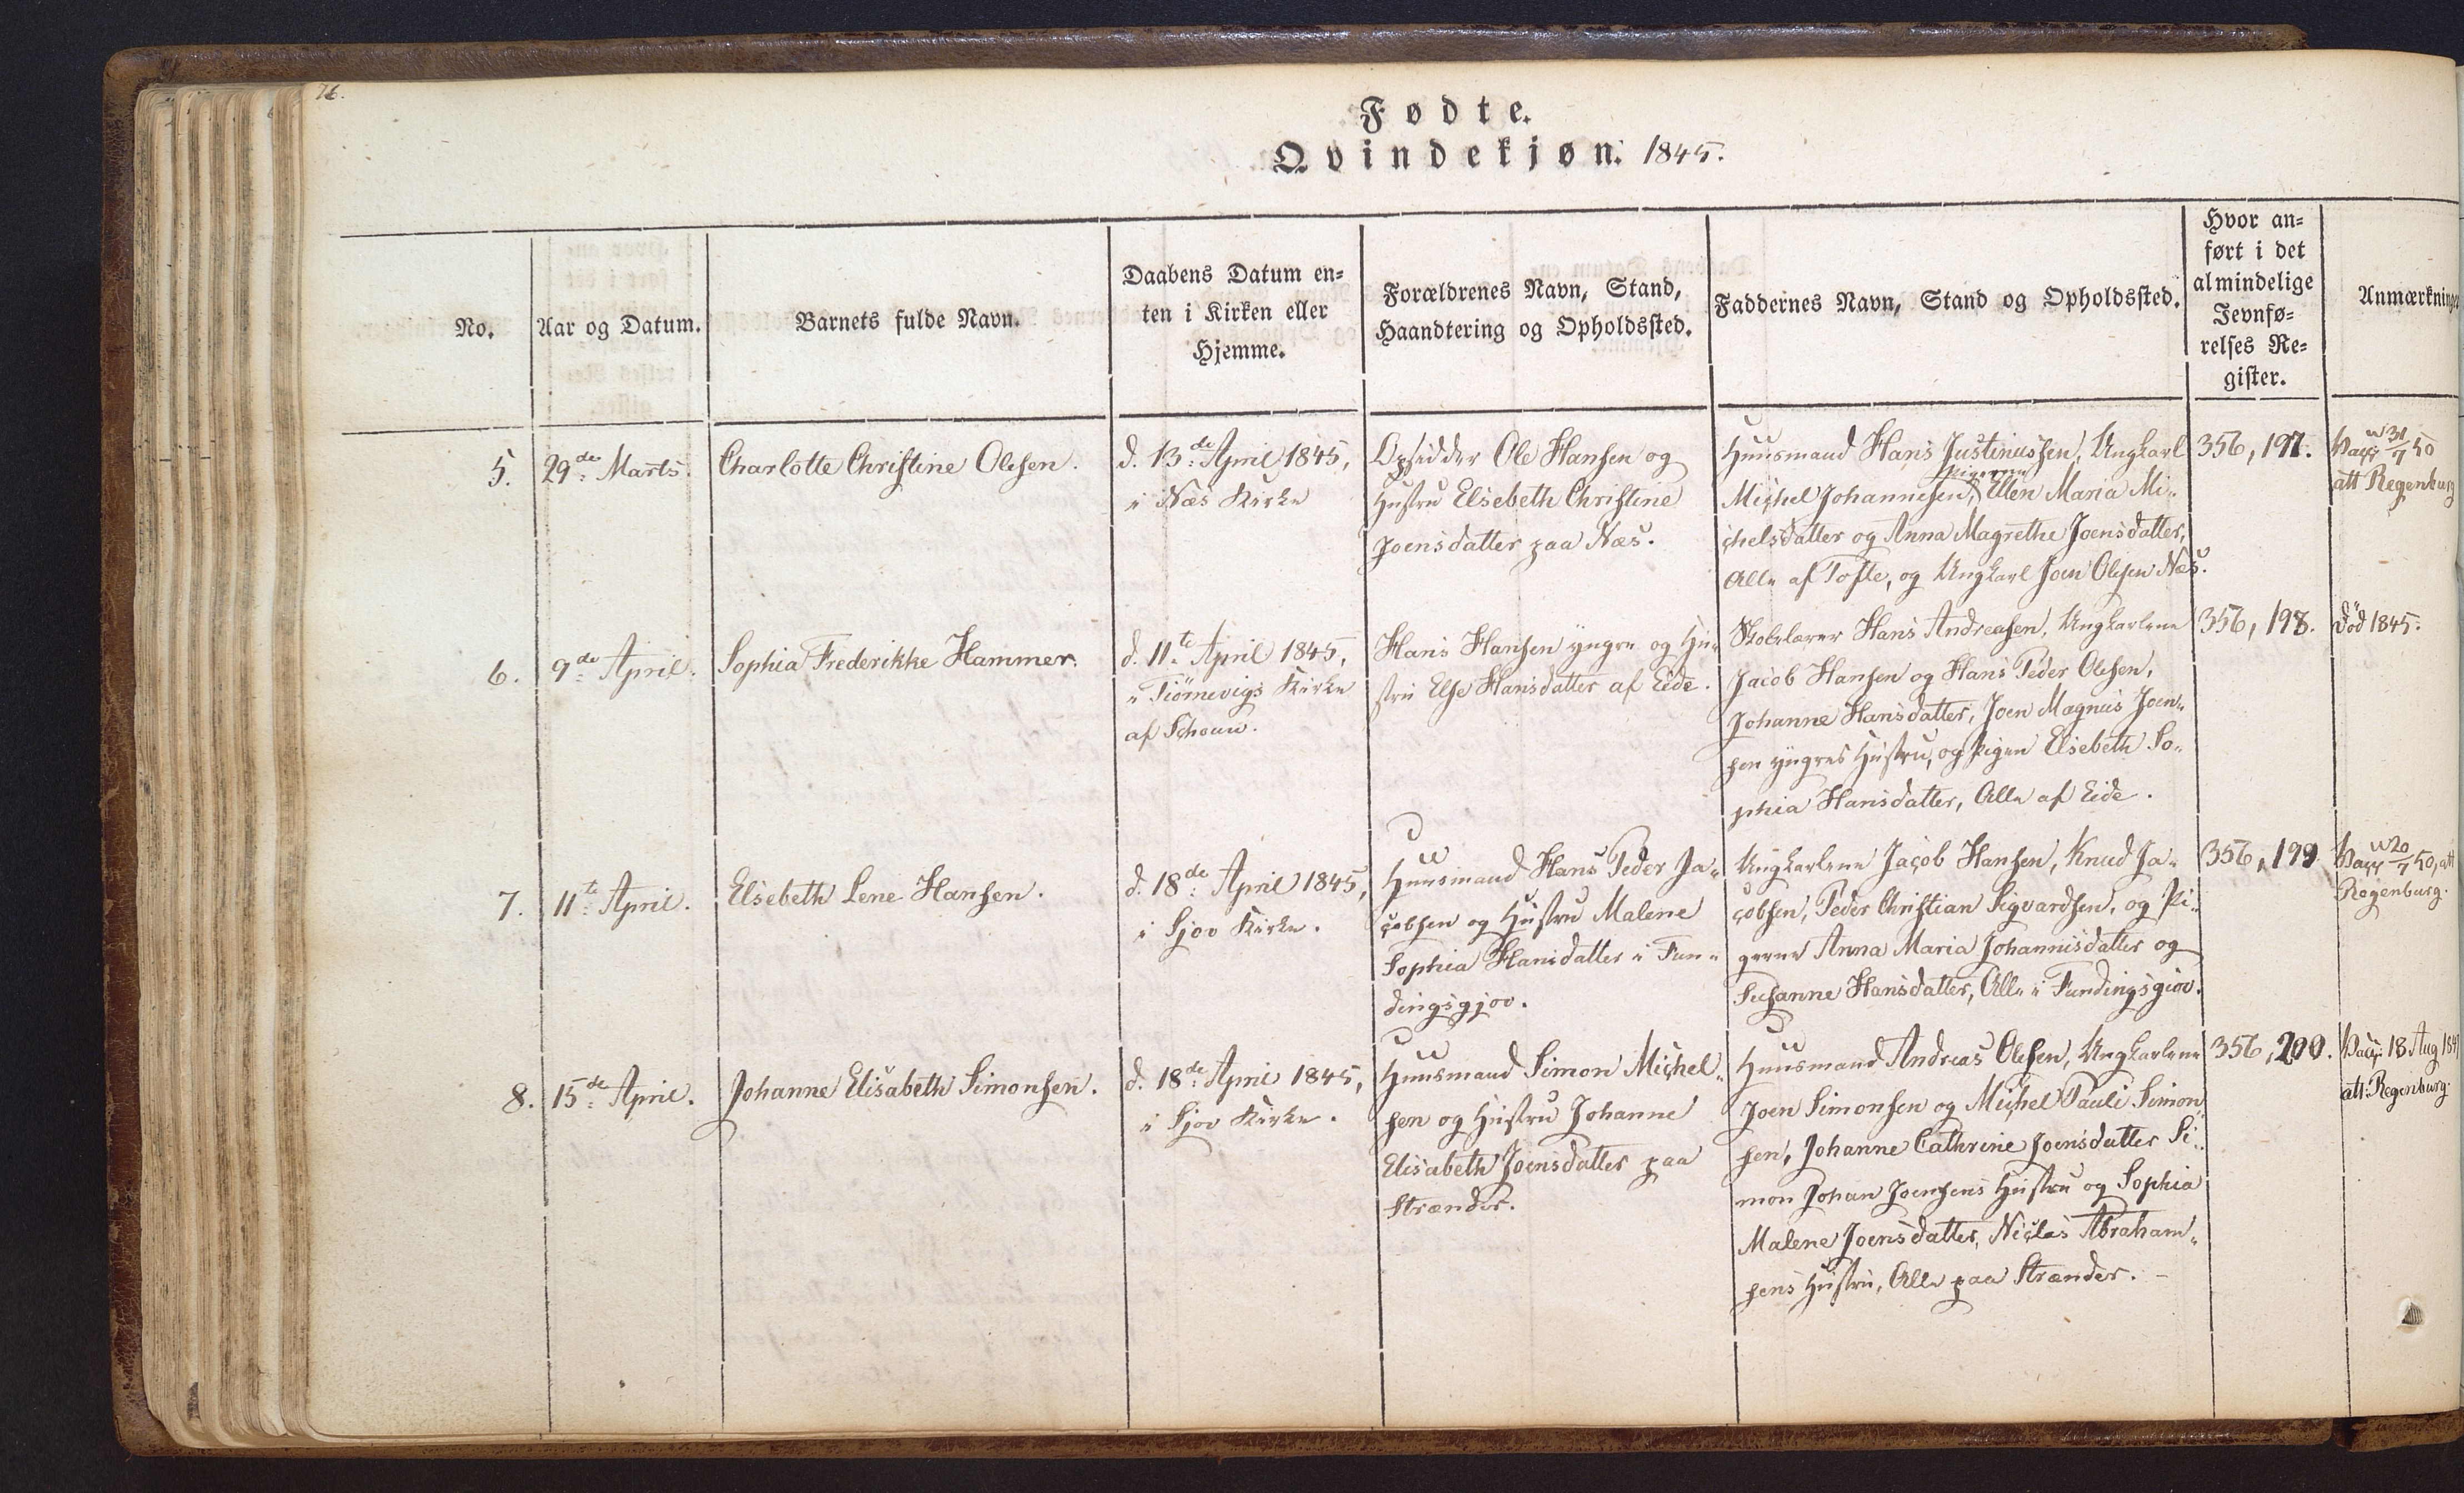 76.
Fødte.
Qvindekjøn. 1845.
No.
Aar og Datum.
Barnets fulde Navn.
Daabens Datum en-
ten i Kirken eller
Hjemme.
Forældrenes Navn, Stand,
Haandtering og Opholdssted.
Faddernes Navn, Stand og Opholdssted.
Hvor an-
ført i det
almindelige
Jevnfø-
relses Re-
gister.
Anmærkninge
5.
29de Marts.
Charlotte Christine Olesen.
d. 13de April 1845,
i Næs Kirke
Opsidder Ole Hansen og
Hustru Elsebeth Christine
Joensdatter paa Næs.
Huusmand Hans Justinussen, Ungkarl
Michel Johannesen, Pigerne Ellen Maria Mi-
chelsdatter og Anna Magrethe Joensdatter,
Alle af Tofte, og Ungkarl Joen Olesen Næs.
356, 197.
Vacc. 31/7 50
att Regenburg
6.
9de April.
Sophia Frederikke Hammer.
d. 11te April 1845,
i Tiörnevigs Kirke
af Schouu.
Hans Hansen yngre og Hu-
stru Else Hansdatter af Eide.
Skolelærer Hans Andreasen, Ungkarlene
Jacob Hansen og Hans Peder Olesen,
Johanne Hansdatter, Joen Magnus Joen-
sen yngres Hustru, og Pigen Elsebeth So-
phia Hansdatter, Alle af Eide.
356, 198.
Död 1845.
7.
11te April.
Elsebeth Lene Hansen.
d. 18de April 1845,
i Gjov Kirke.
Huusmand Hans Peder Ja-
cobsen og Hustru Malene
Sophia Hansdatter i Fun-
dingsgjov.
Ungkarlene Jacob Hansen, Knud Ja-
cobsen, Peder Christian Sigvardsen, og Pi-
gerne Anna Maria Johannisdatter og
Susanne Hansdatter, Alle i Fundingsgiov.
356, 199
Vacc. 20/7 50, att
Regenburg.
8.
15de April.
Johanne Elisabeth Simonsen.
d. 18de April 1845,
i Gjov Kirke.
Huusmand Simon Michel-
sen og Hustru Johanne
Elisabeth Joensdatter paa
Strænder.
Huusmand Andreas Olesen, Ungkarlene
Joen Simonsen og Michel Pauli Simon-
sen, Johanne Cathrine Joensdatter Si-
mon Johan Joensens Hustru og Sophia
Malene Joensdatter, Niclas Abraham-
sens Hustru, Alle paa Strænder. -
356, 200.
Vacc: 18 Aug 184
att: Regenburg.